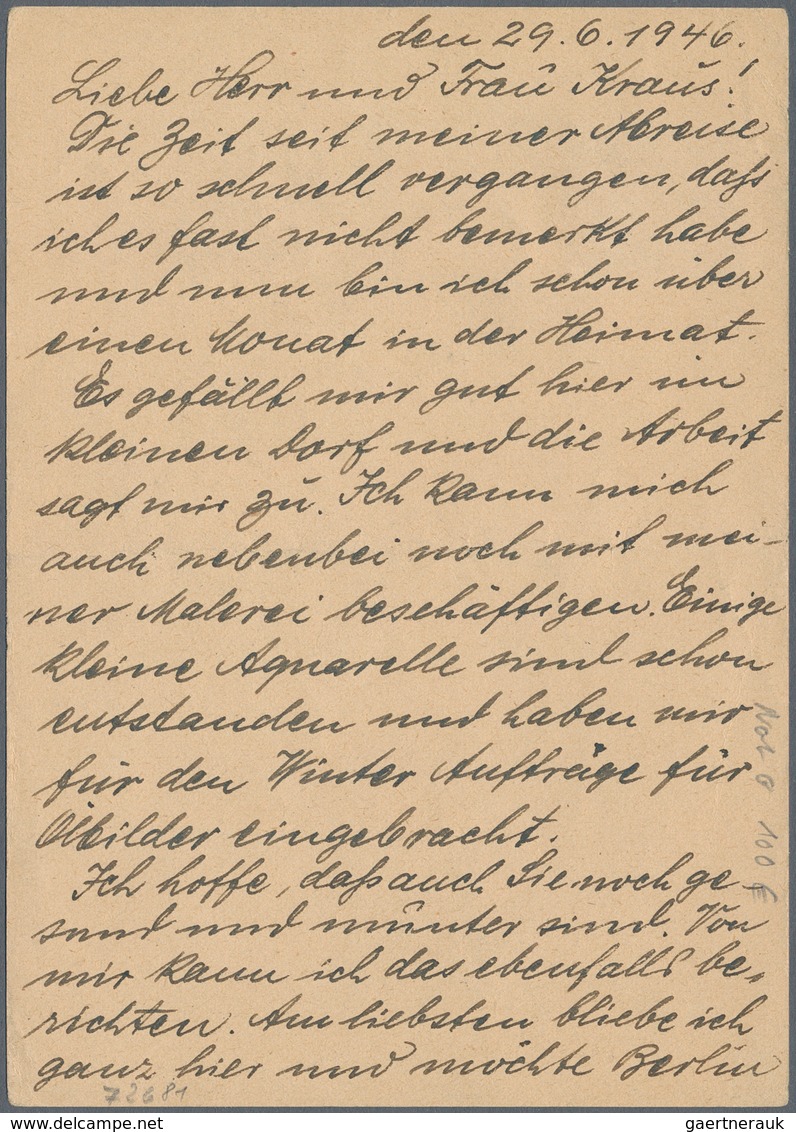 den 29.6.1946.
Liebe Herr und Frau Kraus!
Die Zeit seit meiner Abreise
ist so schnell vergangen, daß
ich es fast nicht bemerkt habe
und nun bin ich schon über
einen Monat in der Heimat.
Es gefällt mir gut hier im
kleinen Dorf und die Arbeit
sagt mir zu. Ich kann mich
auch nebenbei noch mit mei-
ner Malerei beschäftigen. Einige
kleine Aquarelle sind schon
entstanden und haben mir
für den Winter Aufträge für
Ölbilder eingebracht.
Ich hoffe, daß auch Sie noch ge-
sund und munter sind. Von
mir kann ich das ebenfalls be-
richten. Am liebsten bliebe ich
ganz hier und möchte Berlin
72681
100 €
www.delcampe.net
gaertnerauk